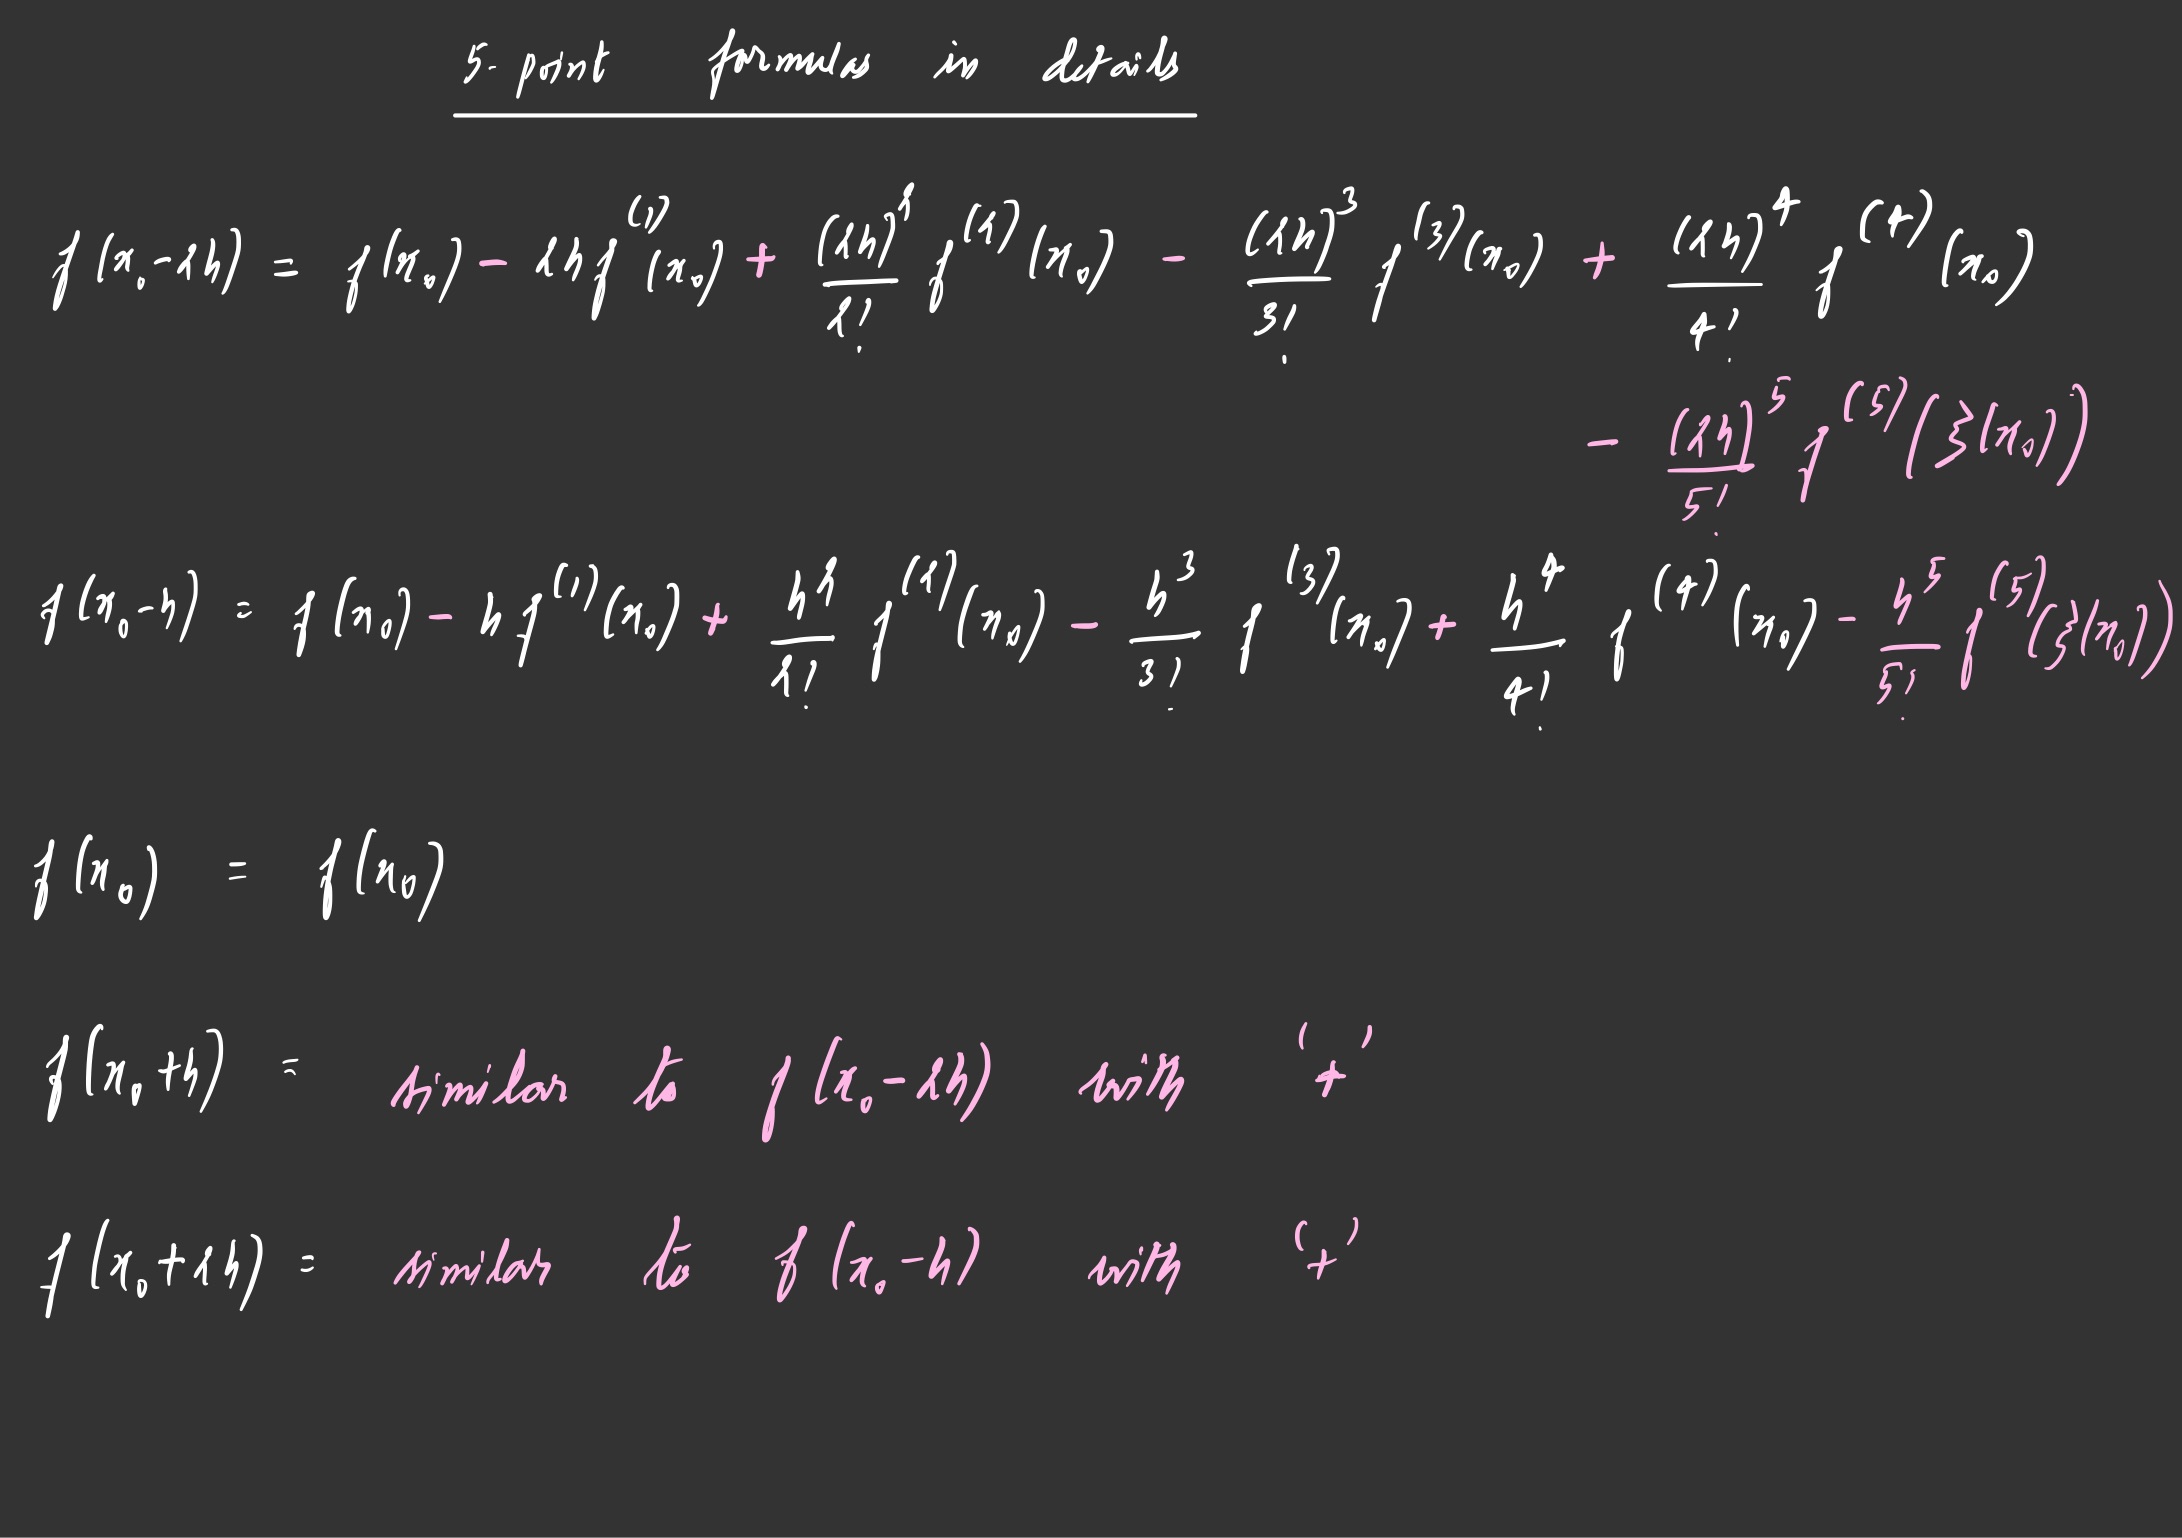 5-point formulas in details
f(x₀-2h) = f(x₀) - 2h f⁽¹⁾(x₀) + (2h)²/2! f⁽²⁾(x₀) - (2h)³/3! f⁽³⁾(x₀) + (2h)⁴/4! f⁽⁴⁾(x₀)
- (2h)⁵/5! f⁽⁵⁾(ξ(x₀))
f(x₀-h) = f(x₀) - h f⁽¹⁾(x₀) + h²/2! f⁽²⁾(x₀) - h³/3! f⁽³⁾(x₀) + h⁴/4! f⁽⁴⁾(x₀) - h⁵/5! f⁽⁵⁾(ξ(x₀))
f(x₀) = f(x₀)
f(x₀+h) = similar to f(x₀-2h) with '+'
f(x₀+2h) = similar to f(x₀-h) with '+'